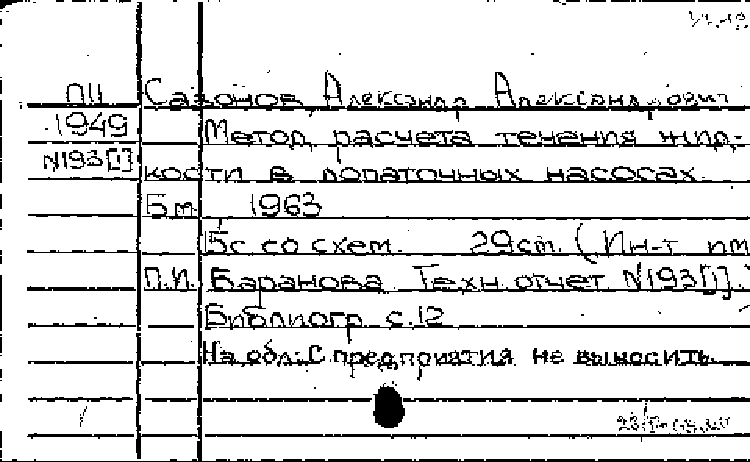 ПЦ Сазонов, Александр Александрович
1949 Метод расчета течения жид-
N193[1] кости в лопаточных насосах.
Б.м., 1963
15с со схем. 29см. (Ин-т
П.И. Баранова. Техн. отчет N193[1].
Библиогр. с.12
На обл.: С предприятия не выносить.